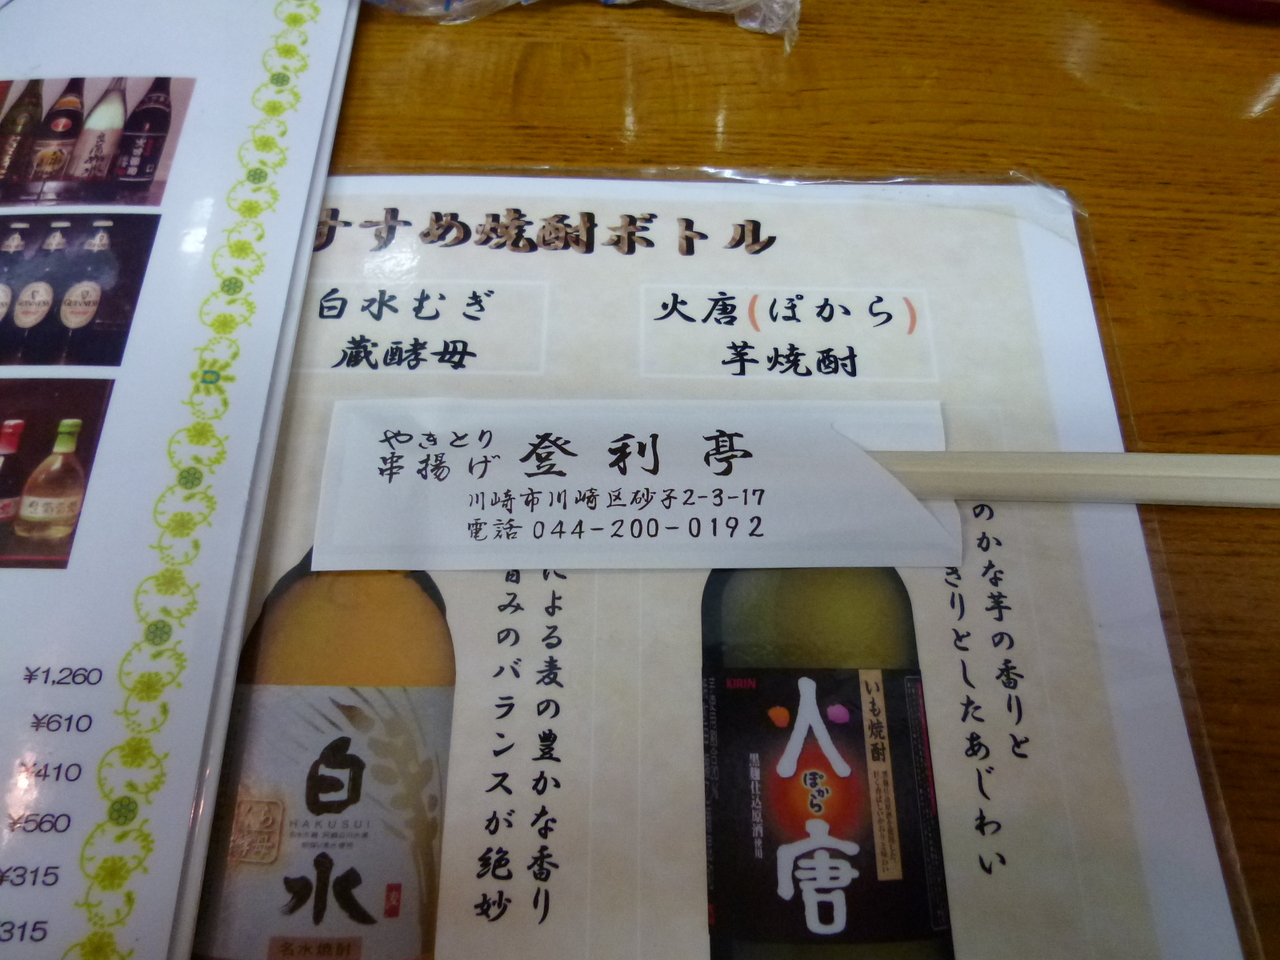 すすめ焼酎ボトル
白水むぎ
蔵酵母
火唐(ぽから)
芋焼酎
やきとり
串揚げ
登利亭
川崎市川崎区砂子2-3-17
電話 044-200-0192
による麦の豊かな香り
旨みのバランスが絶妙
のかな芋の香りと
きりとしたあじわい
白水
HAKUSUI
麦
名水焼酎
KIRIN
火唐
ぽから
いも焼酎
黒麹仕込原酒使用
GUINNESS
¥1,260
¥610
¥410
¥560
¥315
¥315